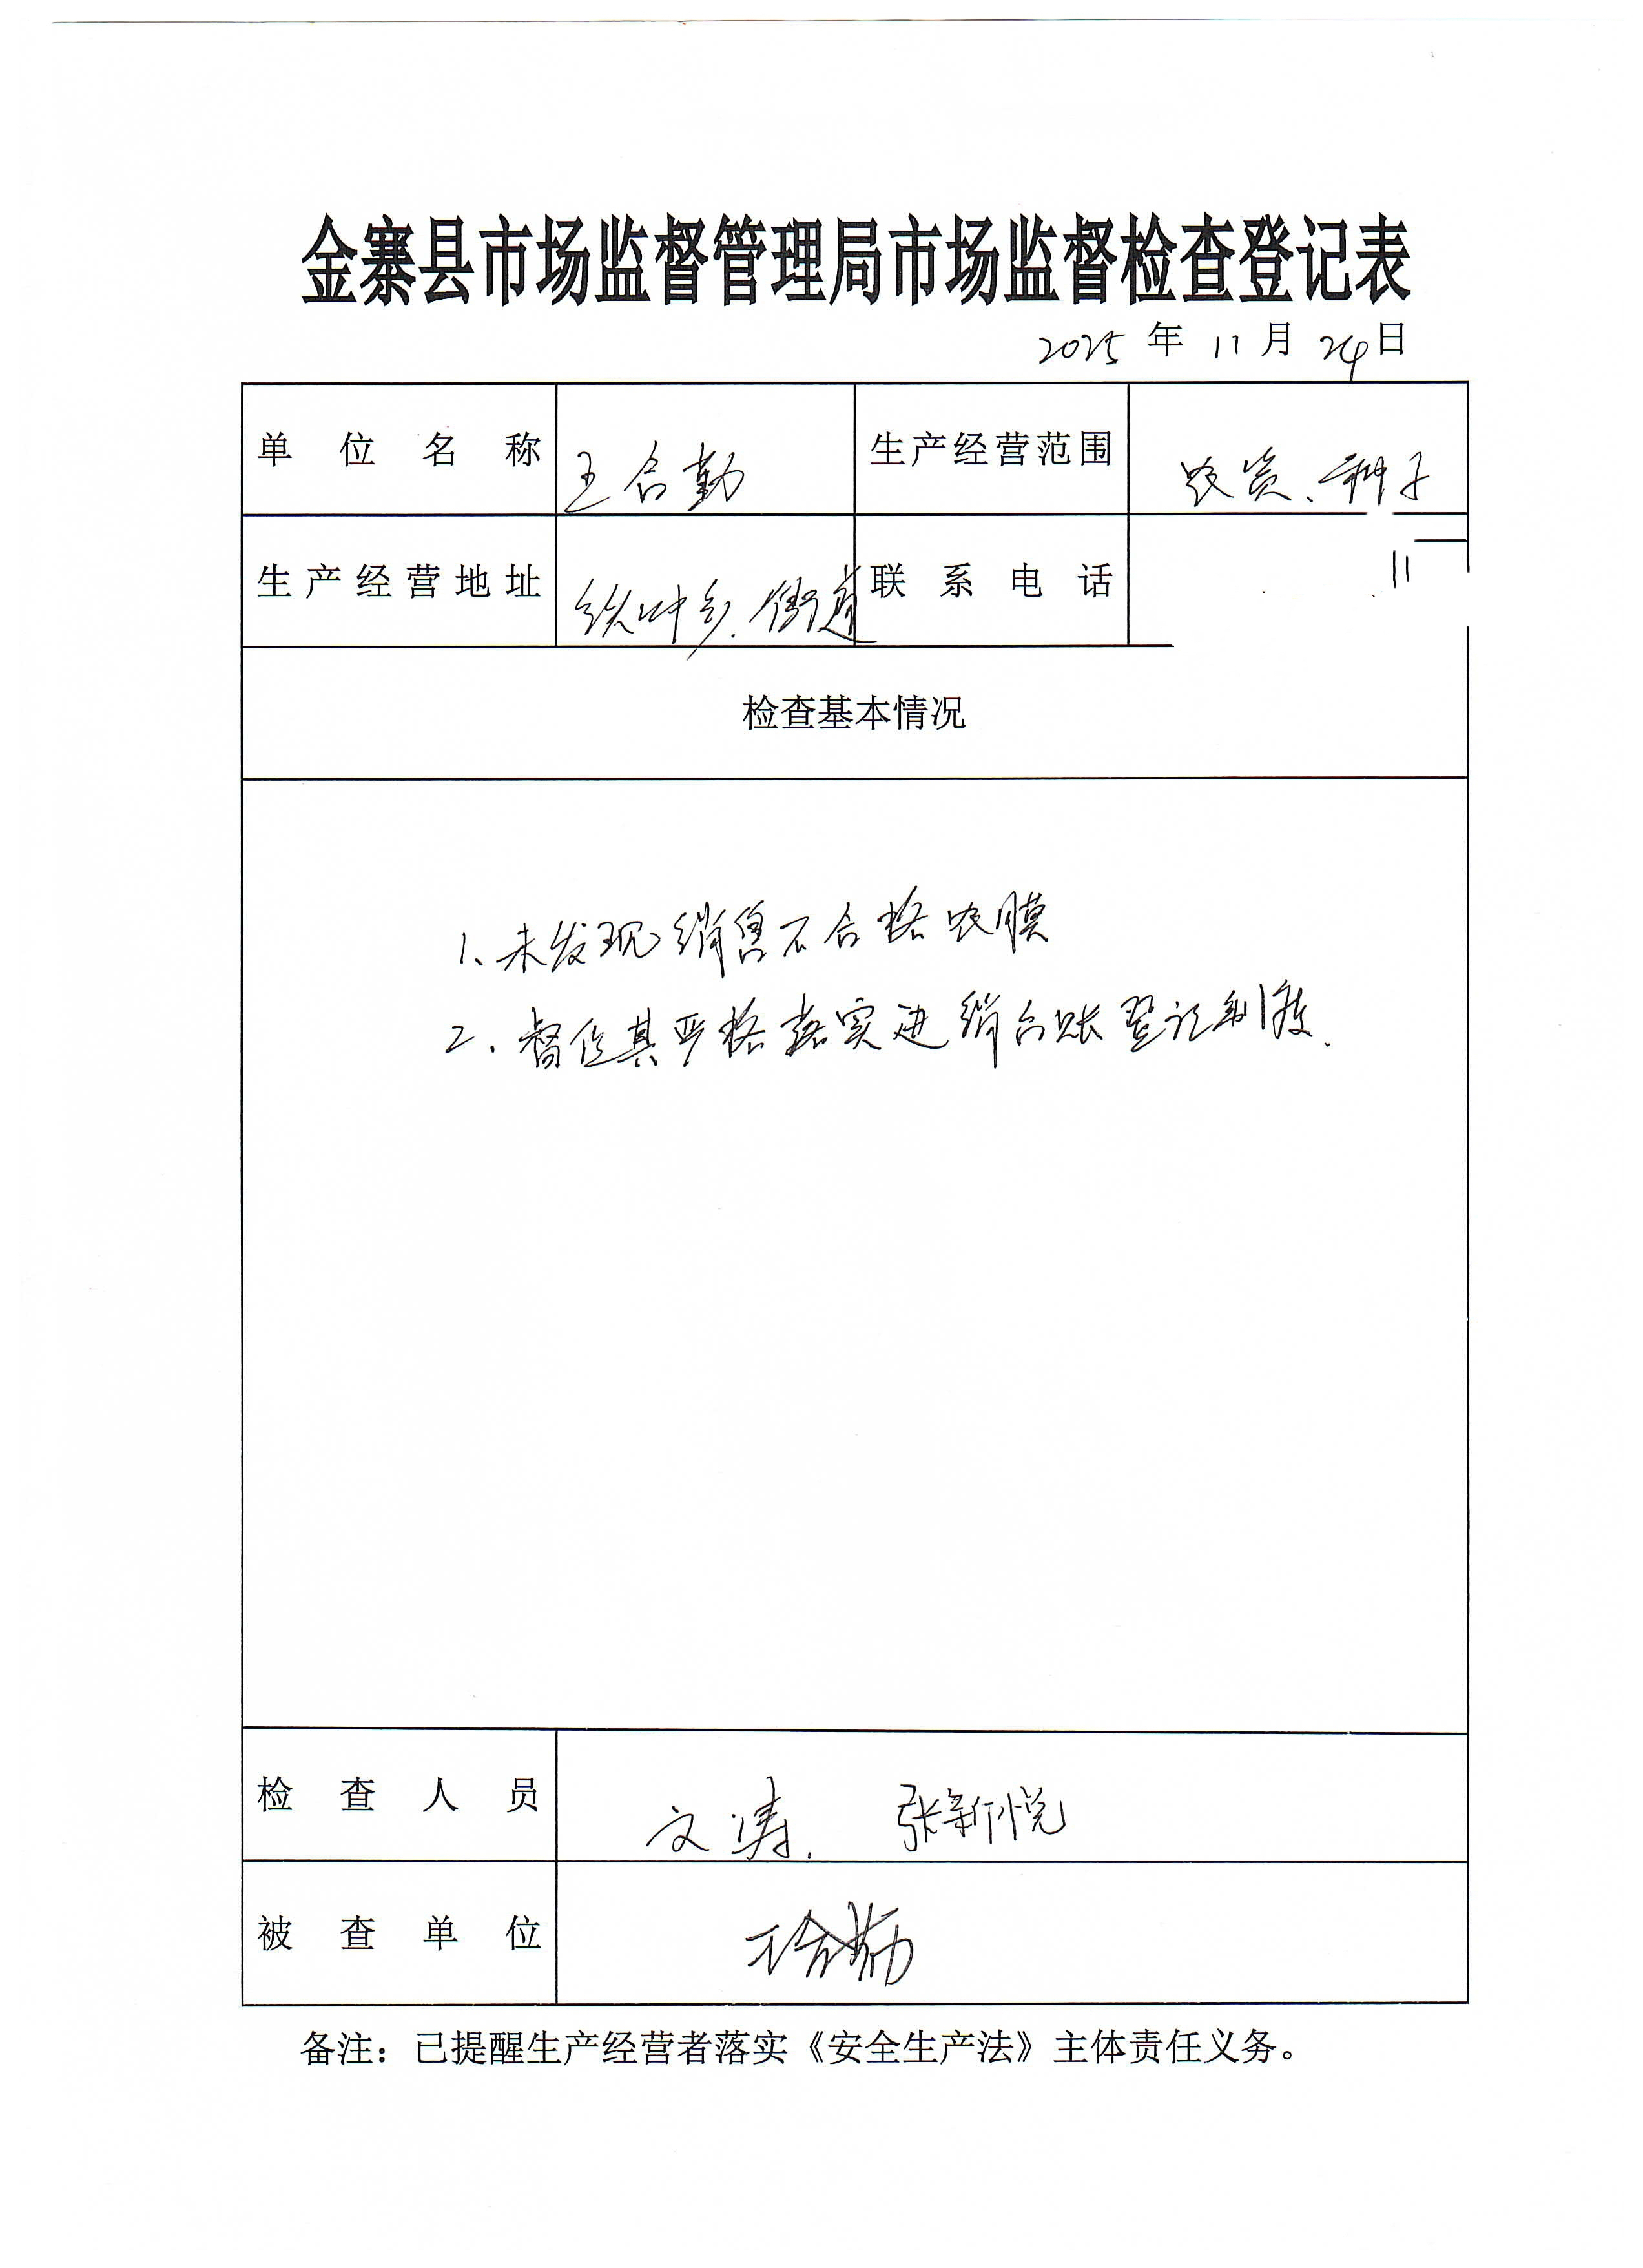 金寨县市场监督管理局市场监督检查登记表
2025 年 11 月 24 日
单位名称 王合勤 生产经营范围 农资、种子
生产经营地址 铁冲乡.街道 联系电话 11
检查基本情况
1、未发现销售不合格农膜
2、督促其严格落实进销台账登记制度.
检查人员 文涛. 张新悦
被查单位 王合勤
备注：已提醒生产经营者落实《安全生产法》主体责任义务。